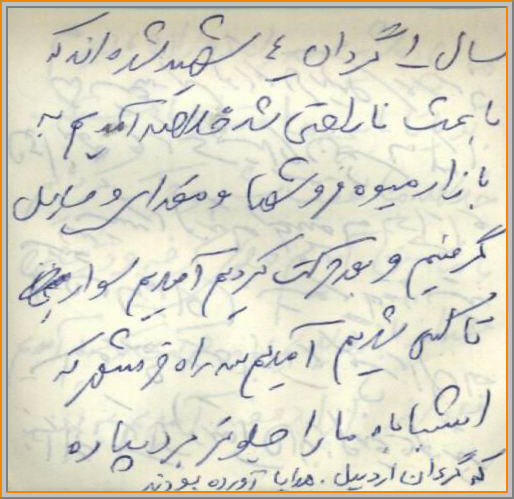 سال از گردان ٤ شهید شده‌اند که
باعث ناراحتی شد خلاصه آمدیم به
بازار میوه فروشها و مقداری وسایل
گرفتیم و بعد حرکت کردیم آمدیم سوار
تاکسی شدیم آمدیم سه راه خرمشهر که
اشتباها ما را جلوتر برد پیاده
که گردان اردبیل. هدایا آورده بودند